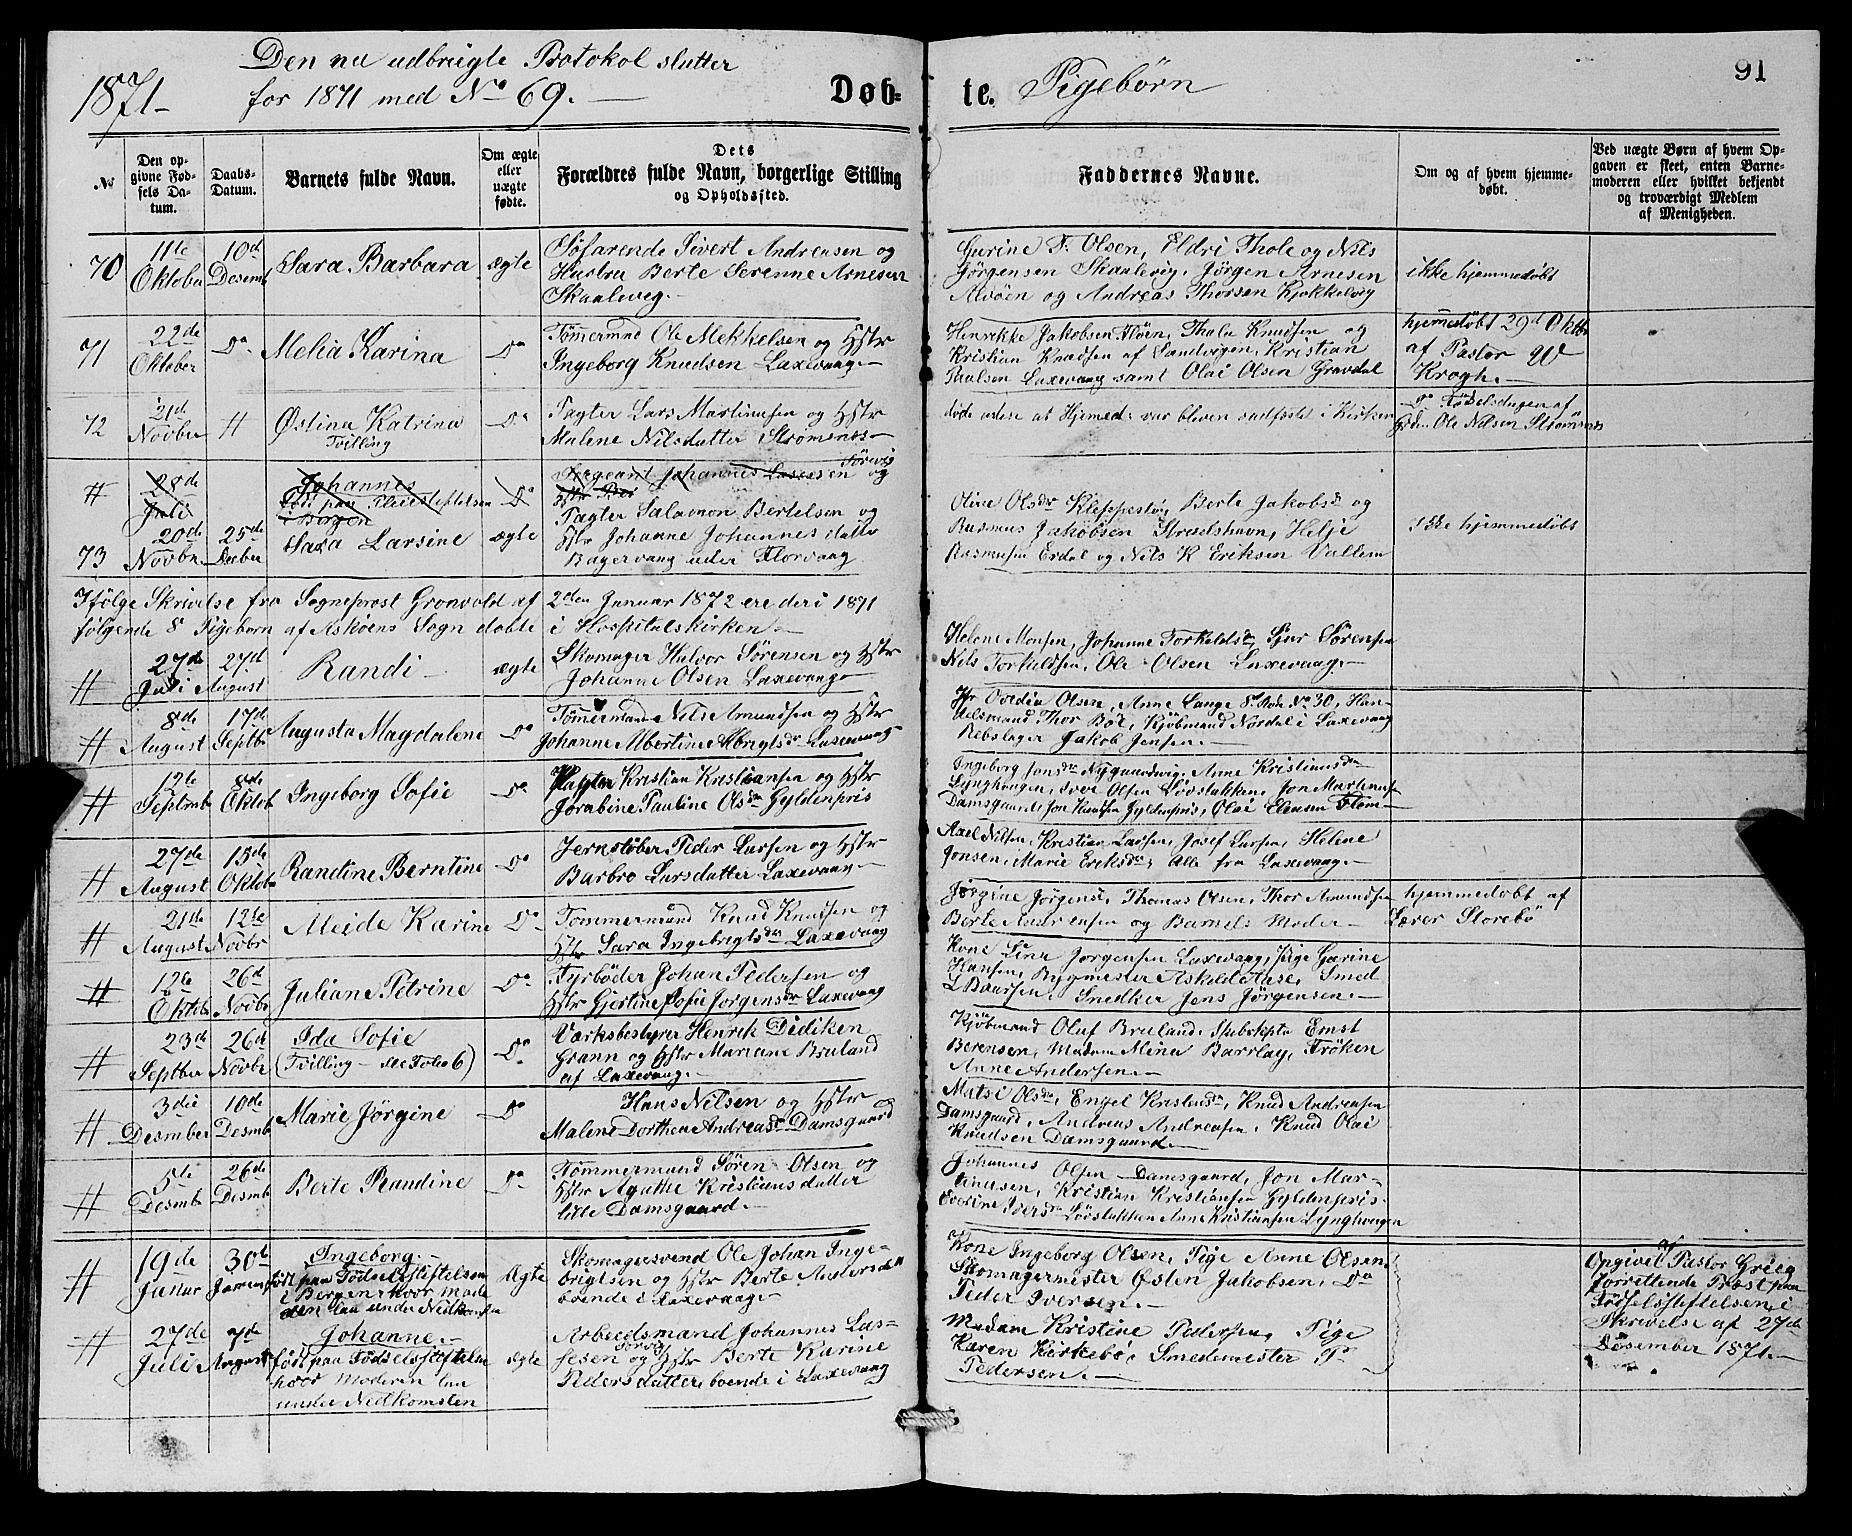 Den nu udbrugte Protokol slutter
1871 for 1871 med No 69.
Døb= te. Pigebørn
91
No
Den op-
givne Fød-
sels Da-
tum.
Daabs-
Datum.
Barnets fulde Navn.
Om ægte
eller
uægte
fødte.
Dets
Forældres fulde Navn, borgerlige Stilling
og Opholdssted.
Faddernes Navne.
Om og af hvem hjemme-
døbt.
Ved uægte Børn af hvem Op-
gaven er skeet, enten Barne-
moderen eller hvilket bekjendt
og troværdigt Medlem
af Menigheden.
70
11te
Oktober
10d
Desemb
Sara Barbara
ægte
Søfarende Sivert Andreasen og
Hustru Berte Serenne Arnesen
Skaalevig
Gurine Olsen, Eldri Thole og Nils
Jørgensen Skaalevig, Jørgen Arnesen
Alvøen og Andreas Thorsen Kjøkkelvig
ikke hjemmedøbt
71
22de
Oktober
Do
Melia Karina
Do
Tømermand Ole Mekkelsen og Hstr
Ingeborg Knudsen Laxevaag
Henrikke Jakobsen Fløen, Thala Knudsen og
Kristian Knudsen af Sandvigen, Kristian
Paulsen Laxevaag samt Olai Olsen Gravdal
hjemmedøbt 29d Oktbr
af Pastor W
Krogh.
72
21d
Novbr
#
Østina Katrina
Tvilling
Do
Pagter Lars Martinusen og Hstr
Malene Nilsdatter Strømsnes
døde uden at Hjemmed: var bleven stadfæstet i Kirken
Do Fødselsdagen af
Gdm. Ole Nilsen Strømsnes
#
28de
Juli
Johannes
født paa Fødselsstiftelsen
i Bergen
Do
Sergeant Johannes Lassesen og
Hstr Ber
73
20de
Novbr
25de
Decbr
Sara Larsine
ægte
Pagter Salamon Bertelsen og
Hstr Johanne Johannesdatter
Bagervaag under Florvaag
Oline Olsdr Kleppestø, Berte Jakobsdr og
Rasmus Jakobsen Strudshavn, Helje
Rasmusen Erdal og Nils K Eriksen Vallem
ikke hjemmedøbt
Ifølge Skrivelse fra Sogneprost Grønvold af 2den Januar 1872 ere der i 1871
følgende 8 Pigebørn af Askøens Sogn døbte i Hospitalskirken
#
27de
Juli
27d
August
Randi
ægte
Skomager Halvor Sørensen og Hstr
Johanne Olsen Laxevaag
Helene Monsen, Johanne Torkeldsdr, Sjur Sørensen
Nils Torkeldsen, Ole Olsen Laxevaag
#
8de
August
17d
Septbr
Augusta Magdalene
Do
Tømermand Nils Amundsen og Hstr
Johanne Albertine Albrigtsdr Laxevaag
Olsen, Anne Lange 8de Rode No 30, Han-
delsmand Thor Bøe, Kjøbmand Nordal i Laxevaag
Rebslager Jakob Jensen
#
12te
Septmb
8de
Oktob
Ingeborg Sofie
Do
Pagter Kristian Kristiansen og Hstr
Jorabine Pauline Olsdr Gyldenpris
Ingeborg Jonsdr Nygaardsvig, Anne Kristiansdr
Lynghougen, Iver Olsen Løvstakken, Jon Martinusen
Damsgaard, Jon Hansen Gyldenpris, Olai Elensen
#
27de
August
15de
Oktob
Randine Berntine
Do
Jernstøber Peder Larsen og Hstr
Barbro Larsdatter Laxevaag
Axel Nilsen, Kristian Larsen, Josef Larsen, Helene
Jonsen, Marie Eriksdr, Alle fra Laxevaag
#
21de
August
12te
Novbr
Meide Karine
Do
Tømmermand Knud Knudsen og
Hstr Sara Ingebrigtsdr Laxevaag
Jørgine Jørgensd, Thomas Olsen, Thor Amundsen
Berte Andreasen og Barnets Moder
hjemmedøbt af
Lærer Storebø
#
12te
Oktbr
26d
Novbr
Juliane Petrine
Do
Fyrbøder Johan Pedersen og
Hstr Gjertine Sofie Jørgensdr Laxevaag
Kone Line Jørgensen Laxevaag, Pige Garine
Hansen, Bygmester Askeld Aase, Smed
L Baarsen, Snedker Jens Jørgensen
#
23de
Septbr
26d
Novbr
Ida Sofie
(Tvilling – see Folio 6)
Do
Værksbestyrer Henrik Didiken
Grann og Hstr Mariane Bruland
af Laxevaag
Kjøbmand Oluf Bruland, Skibskptn Ernst
Berensen, Madam Mina Barclay, Frøken
Anne Andersen
#
3die
Desmber
10de
Desmb
Marie Jørgine
Do
Hans Nilsen og Hstr
Malene Dorthea Andreasdr Damsgaard
Matsi Olsdr, Engel Kristensdr, Knud Andreasen
Damsgaard, Andreas Andreasen, Knud Olai
Knudsen Damsgaard
#
5te
Desmb
26de
Desmb
Berte Raudine
Do
Tømmermand Søren Olsen og
Hstr Agathe Kristiansdatter
lille Damsgaard
Johannes Olsen Damsgaard, Jon Mar-
tinusen, Kristian Kristiansen Gyldenpris
Everine Iversdr Løvstakken Anne Kristiansen Lynghougen
#
19de
Januar
30te
Januar
Ingeborg
født paa Fødselsstiftelsen
i Bergen hvor Mode
ren laa under Nedkomsten
Ægte
Skomagersvend Ole Johan Inge-
brigtsen og Hstr Berte Andersdatt
boende i Laxevaag
Kone Ingeborg Olsen, Pige Anne Olsen,
Skomagermester Østen Jakobsen, Do
Peder Iversen
Opgivet af Pastor Grieg
forrettende Præst paa
Fødselsstiftelsen i
Skrivelse af 27de
Desember 1871
#
27de
Juli
7de
August
Johanne
født paa Fødselsstiftelsen
hvor Moderen laa
under Nedkomsten
ægte
Arbeidsmand Johannes Las-
sesen og Hstr Berte Karine
Pedersdatter boende i Laxevaag
Madam Kristine Pedersen, Pige
Karen Kirkebø, Smedemester P.
Pedersen